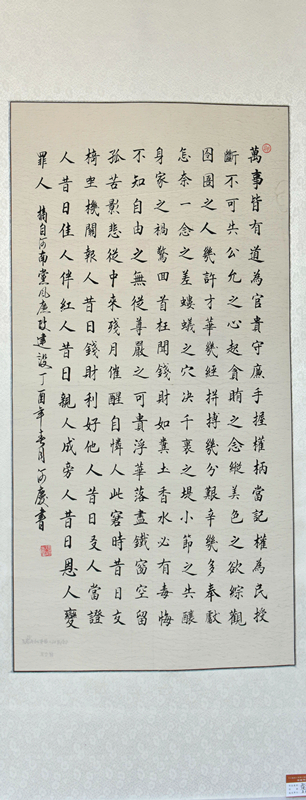 萬事皆有道為官貴守廉手握權柄當記權為民授
斷不可共公允之心起貪賄之念縱美色之欲綜觀
囹圄之人幾許才華幾經拼搏幾分艱辛幾多奉獻
怎奈一念之差螻蟻之穴決千裏之堤小節之共釀
身家之禍驀四首枉聞錢財如糞土香水必有毒悔
不知自由之無從尊嚴之可貴浮華落盡鐵窗空留
孤苦影悲從中來殘月催醒自憐人此窘時昔日友
椅里機關報人昔日錢財利好他人昔日爻人當證
人昔日佳人伴紅人昔日親人成旁人昔日恩人變
罪人 摘自河南黨風廉政建設丁酉年春月